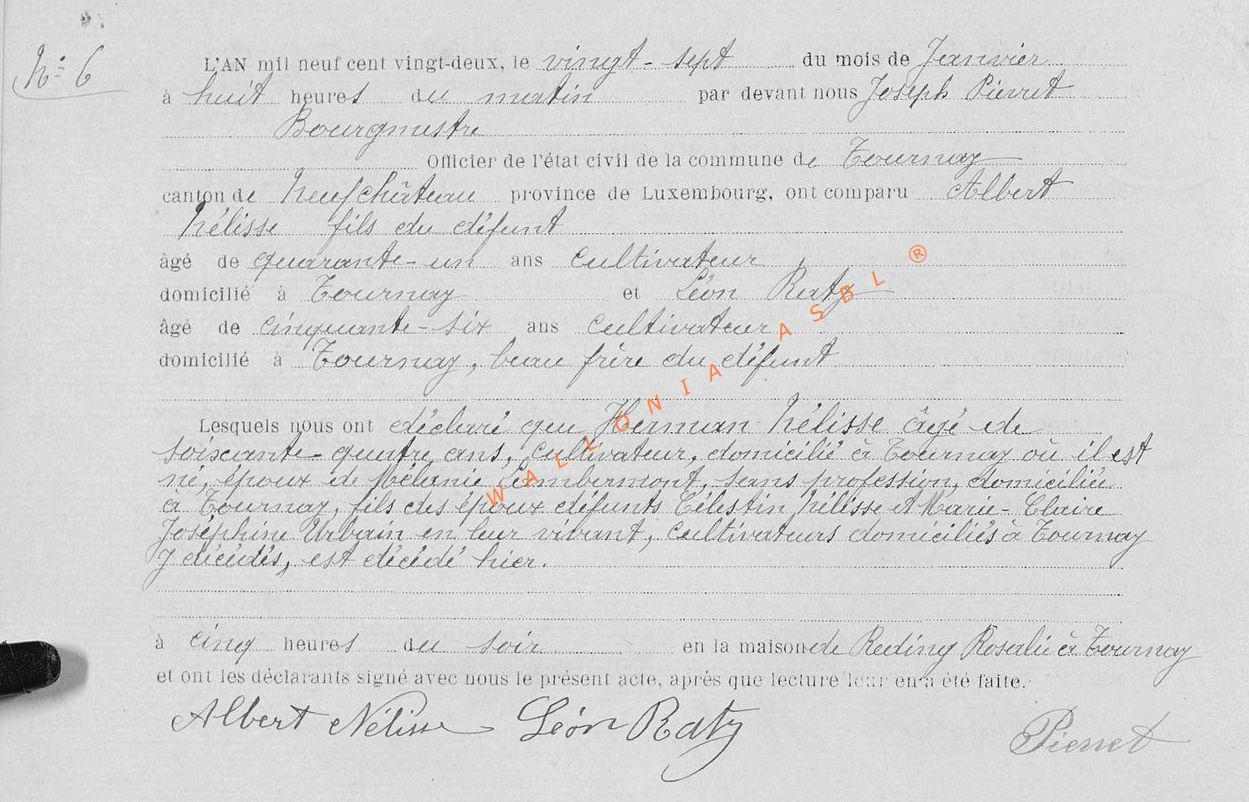 N° 6
L'AN mil neuf cent vingt-deux, le vingt-sept du mois de Janvier
à huit heures du matin par devant nous Joseph Pierret
Bourgmestre
Officier de l'état civil de la commune de Tournay
canton de Neufchâteau province de Luxembourg, ont comparu Albert
Nélisse fils du défunt
âgé de quarante-un ans cultivateur
domicilié à Tournay et Léon Ratz
âgé de cinquante-six ans cultivateur
domicilié à Tournay, beau frère du défunt
Lesquels nous ont déclaré que Herman Nélisse âgé de
soixante-quatre ans, cultivateur, domicilié à Tournay où il est
né, époux de Mélanie Lambermont, sans profession, domiciliée
à Tournay, fils des époux défunts Célestin Nélisse et Marie-Claire
Joséphine Urbain en leur vivant, cultivateurs domiciliés à Tournay
y décédés, est décédé hier.
à cinq heures du soir en la maison de Reding Rosalie à Tournay
et ont les déclarants signé avec nous le présent acte, après que lecture leur en a été faite.
Albert Nélisse Léon Ratz Pierret
WALLONIA ASBL ®